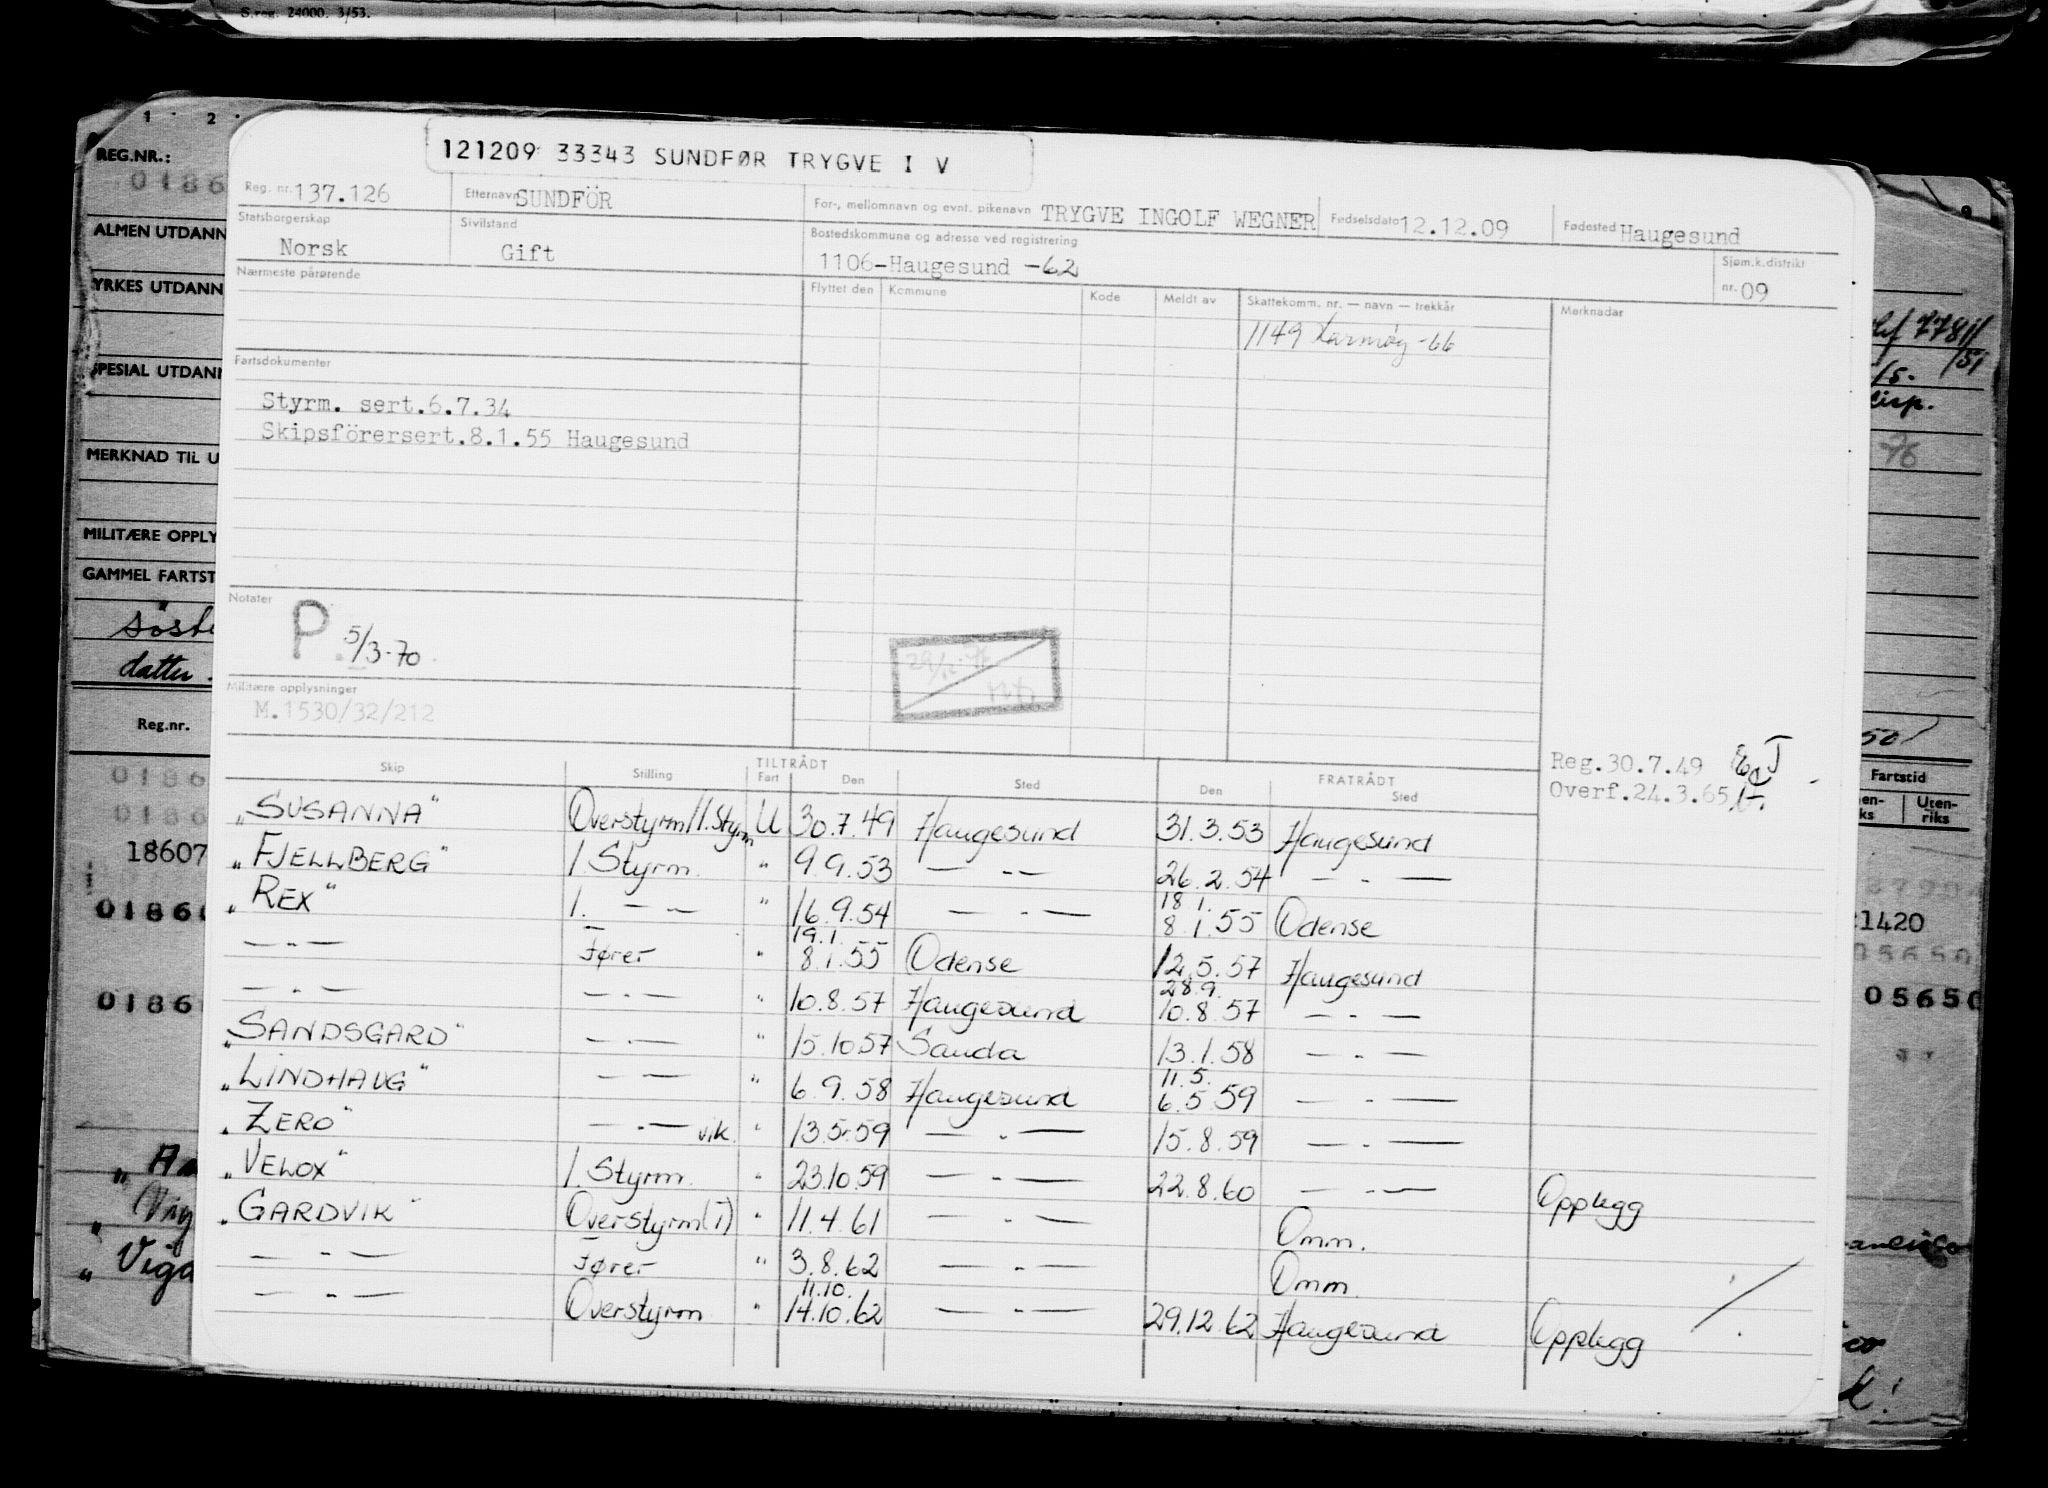 S.reg. 24000. 3/53.
1 2
REG.NR.:
0186
ALMEN UTDANN
YRKES UTDANN
SPESIAL UTDANN
MERKNAD TIL U
MILITÆRE OPPLY
GAMMEL FARTST
datter
Reg.nr.
0186
0186
18607
0186
0186
121209 33343 SUNDFØR TRYGVE I V
Reg. nr. 137.126 Etternavn SUNDFÖR For-, mellomnavn og evnt. pikenavn TRYGVE INGOLF WEGNER Fødselsdato 12.12.09 Fødested Haugesund
Statsborgerskap Norsk Sivilstand Gift Bostedskommune og adresse ved registrering 1106-Haugesund -62 Sjøm.k.distrikt nr. 09
Nærmeste pårørende Flyttet den Kommune Kode Meldt av Skattekomm. nr. — navn — trekkår Merknader
1149 Karmøy -66
Fartsdokumenter
Styrm. sert.6.7.34
Skipsförersert.8.1.55 Haugesund
Notater
P. 5/3-70
Militære opplysninger
M.1530/32/212
Reg.30.7.49
Overf.24.3.65
TILTRÅDT FRATRÅDT
Skip Stilling Fart Den Sted Den Sted
"SUSANNA" Overstyrm/1.Styrm U 30.7.49 Haugesund 31.3.53 Haugesund
"FJELLBERG" 1 Styrm. " 9.9.53 — - — 26.2.54 — - —
"REX" 1. — - — " 16.9.54 — - — 18.1. 8.1.55 Odense
— - — Fører " 19.1. 8.1.55 Odense 12.5.57 Haugesund
— - — — - — " 10.8.57 Haugesund 28.9. 10.8.57 — - —
"SANDSGARD" — - — " 15.10.57 Sauda 13.1.58 — - —
"LINDHAUG" — - — " 6.9.58 Haugesund 11.5. 6.5.59 — - —
"ZERO" — - — vik. " 13.5.59 — - — 15.8.59 — - —
"VELOX" 1. Styrm. " 23.10.59 — - — 22.8.60 — - — Opplegg
"GARDVIK" Overstyrm(1) " 11.4.61 — - — Omm.
— - — Fører " 3.8.62 — - — Omm.
— - — Overstyrm " 11.10. 14.10.62 — - — 29.12.62 Haugesund Opplegg
7781/
/51
76
50
Fartstid
en-
ks
Uten-
riks
1420
05650
05650